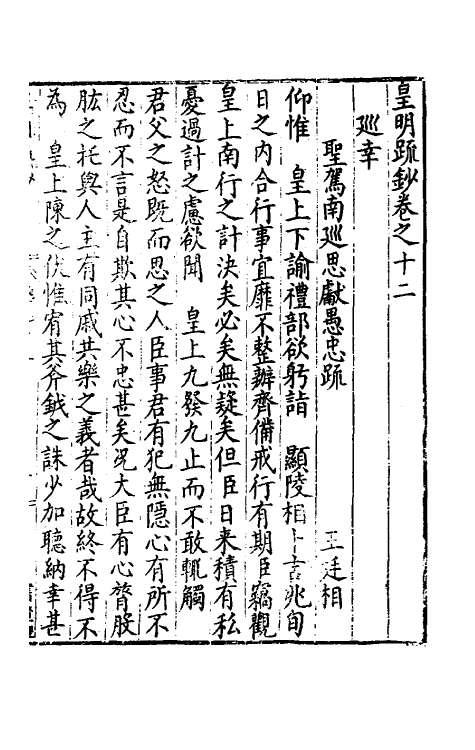 皇明疏鈔卷之十二
巡幸
聖駕南巡思獻愚忠疏 王廷相
仰惟 皇上下諭禮部欲躬詣 顯陵相卜吉兆旬
日之內合行事宜靡不整辦齊備戒行有期臣竊觀
皇上南行之計決矣必矣無疑矣但臣日來積有私
憂過計之慮欲聞 皇上九發九止而不敢輒觸
君父之怒既而思之人臣事君有犯無隱心有所不
忍而不言是自欺其心不忠甚矣况大臣有心膂股
肱之托與人主有同戚共樂之義者哉故終不得不
為 皇上陳之伏惟宥其斧鉞之誅少加聽納幸甚